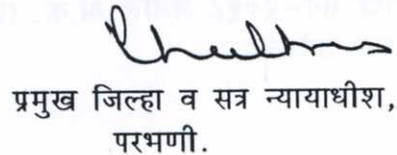 प्रमुख जिल्हा व सत्र न्यायाधीश,
परभणी.